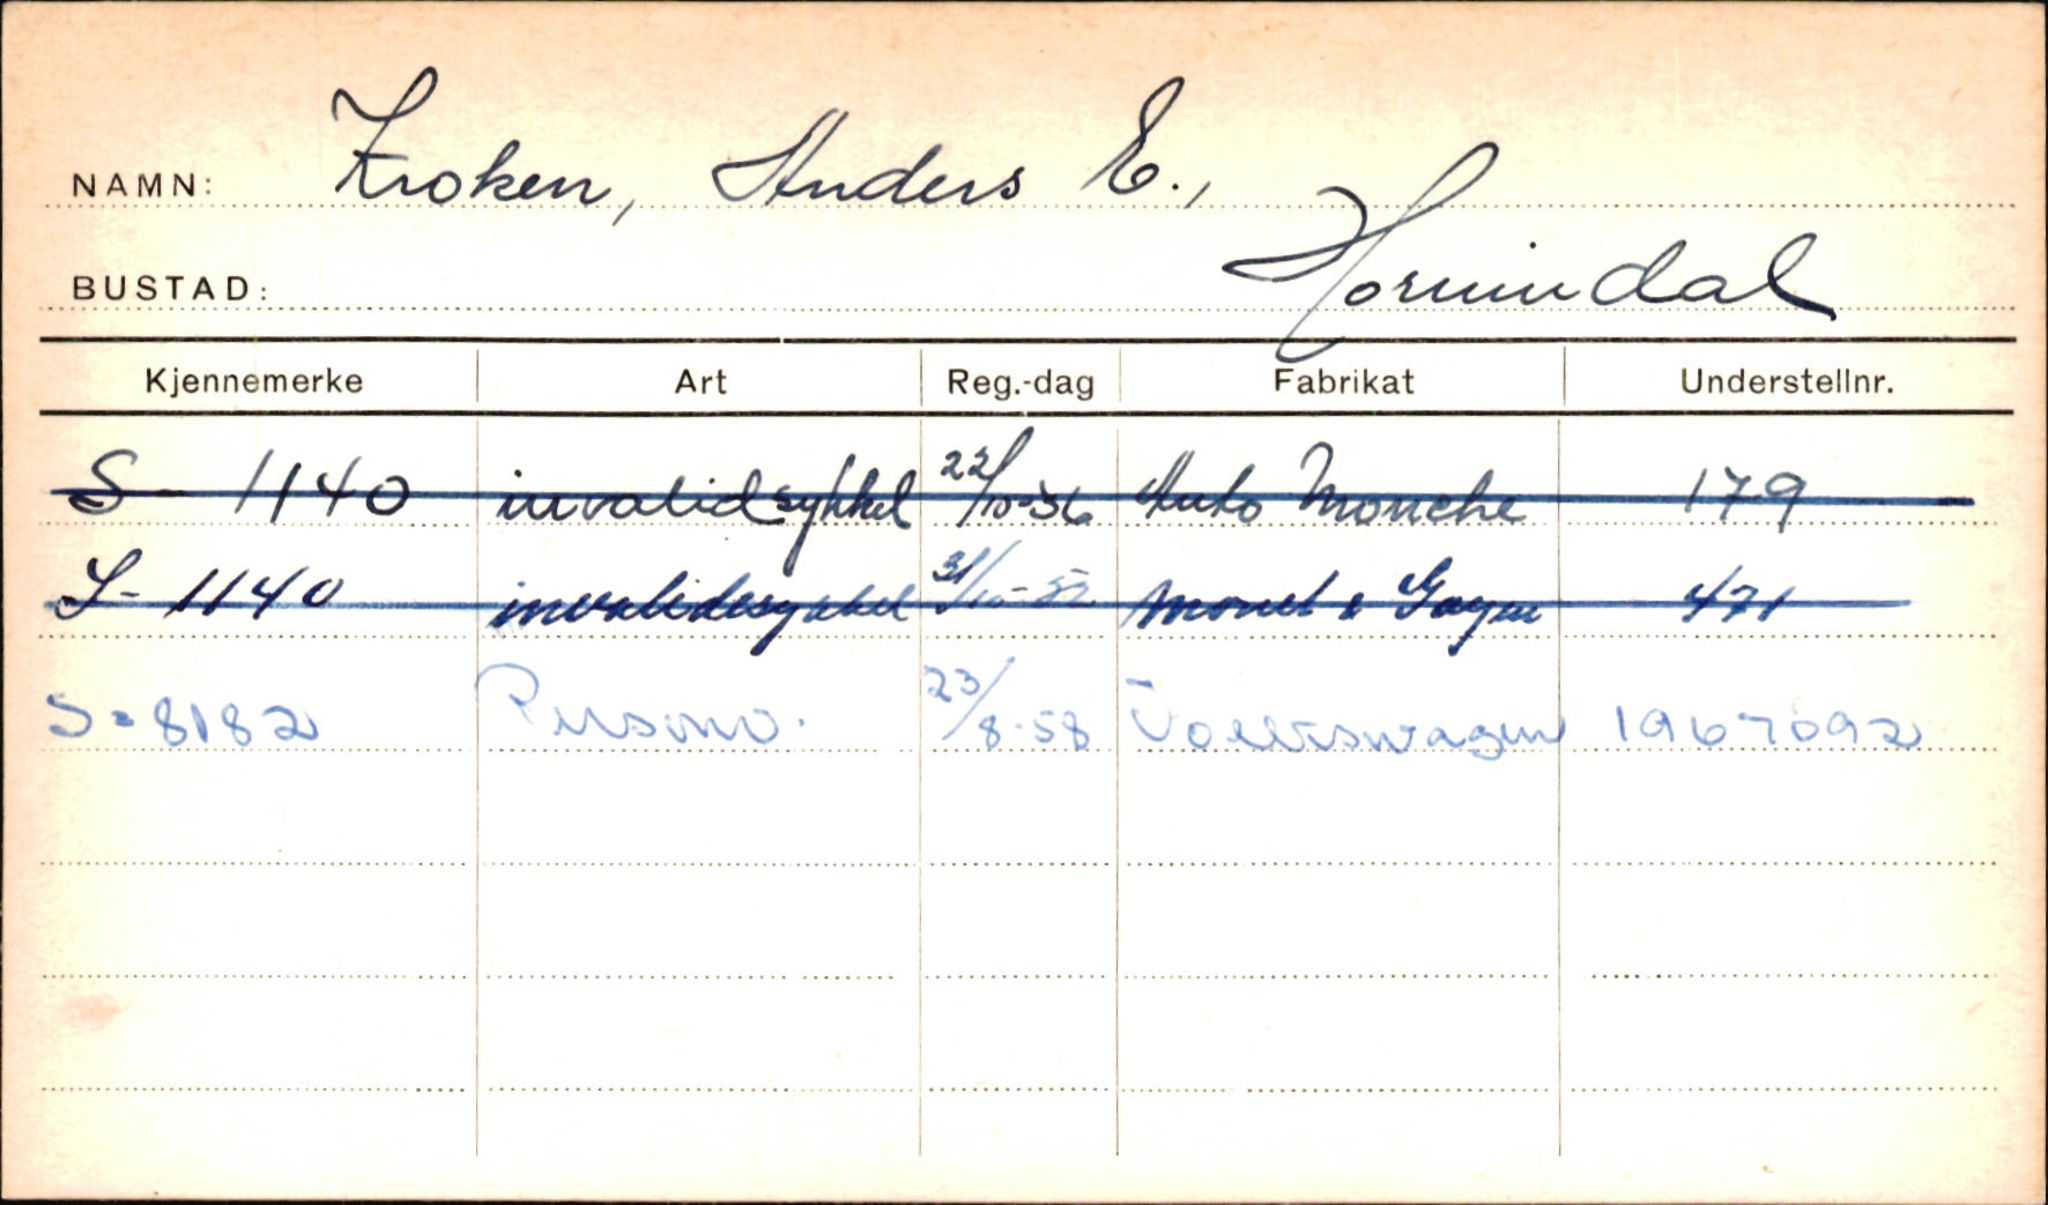 NAMN: Kroken, Anders E.,
BUSTAD: Hornindal
Kjennemerke Art Reg.-dag Fabrikat Understellnr.
S - 1140 invalidsykkel 22/10-56 Auto Mouche 179
S - 1140 invalidesykkel 31/10-52 Monet & Goyon 471
S - 8182 Personv. 23/8-58 Volkswagen 1967092